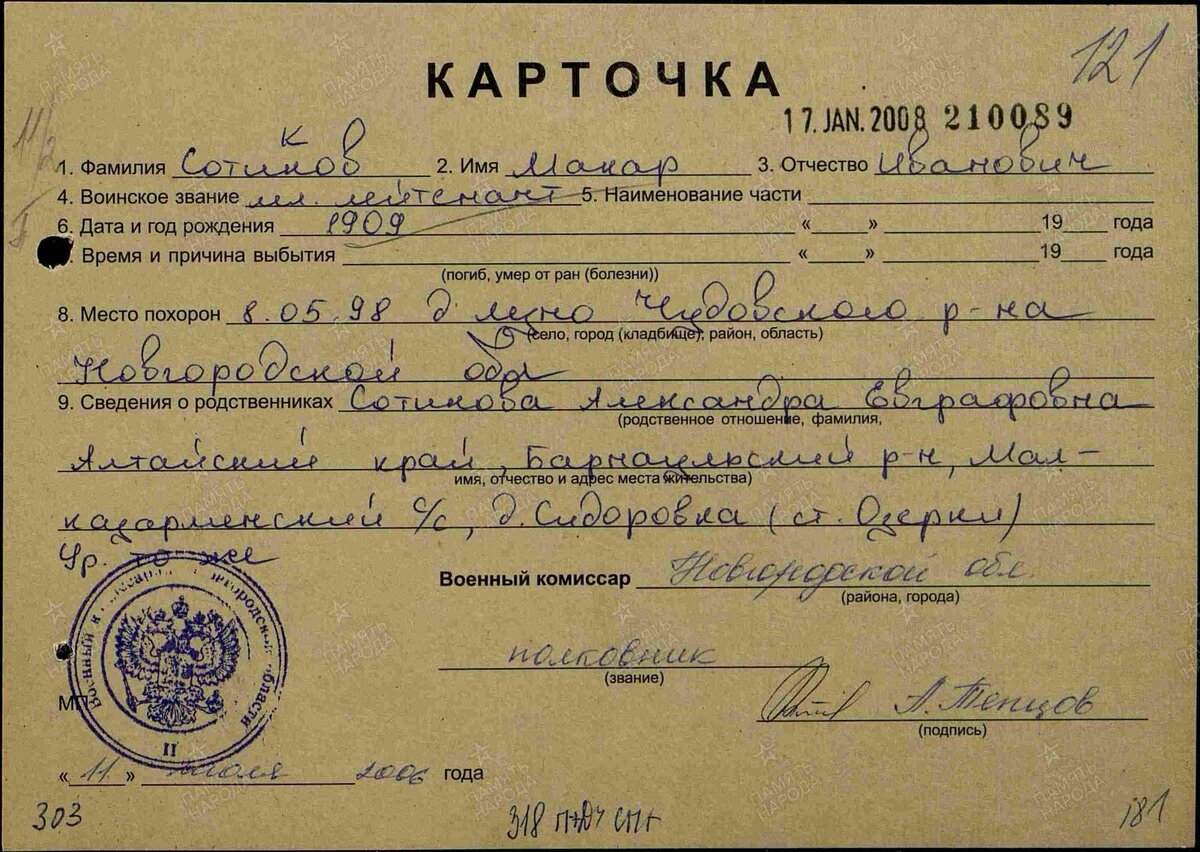 121
КАРТОЧКА
17. JAN. 2008 210089
1. Фамилия Сотиков 2. Имя Макар 3. Отчество Иванович
к
4. Воинское звание мл. лейтенант 5. Наименование части
6. Дата и год рождения 1909 « » 19 года
Время и причина выбытия « » 19 года
(погиб, умер от ран (болезни))
8. Место похорон 8.05.98 д Мясно Чудовского р-на
(село, город (кладбище), район, область)
Новгородской обл
9. Сведения о родственниках Сотикова Александра Евграфовна
(родственное отношение, фамилия,
Алтайский край, Барнаульский р-н, Мал-
имя, отчество и адрес места жительства)
казарменский с/с, д. Сидоровка (ст. Озерки)
Ур. то же
Военный комиссар Новгородской обл.
(района, города)
полковник
(звание)
МП
А. Тепцов
(подпись)
II
« 11 » июля 2006 года
303
318
181
ПАМЯТЬ НАРОДА